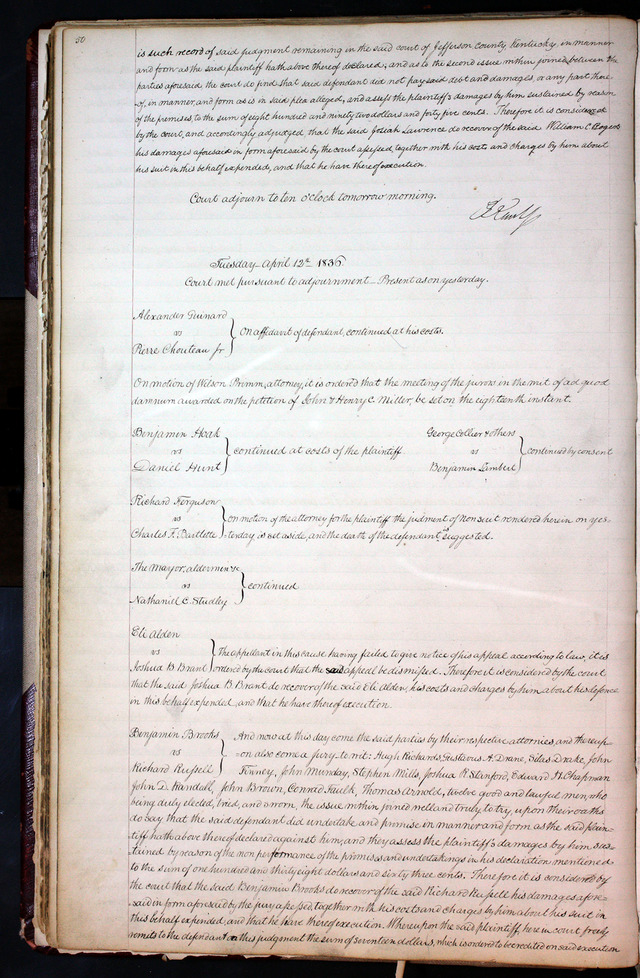 50
is such record of said judgment remaining in the said court of Jefferson County, Kentucky, in manner
and form as the said plaintiff hath above thereof declared; and as to the second issue within joined between the
parties aforesaid, the court do find that said defendant did not pay said debt and damages, or any part there
of, in manner, and form as is in said plea alleged, and assess the plaintiff's damages by him sustained by reason
of the premises, to the sum of eight hundred and ninety two dollars and forty five cents. Therefore it is considered
by the court, and accordingly adjudged that the said Josiah Lawrence do recover of the said William C. Rogers
his damages aforesaid in form aforesaid by the court assessed, together with his costs and charges by him about
his suit in this behalf expended, and that he have thereof execution.
Court adjourn to ten o'clock tomorrow morning.
Tuesday April 12th 1836
Court met pursuant to adjournment - Present as on yesterday.
Alexander Guinard
vs
Pierre Chouteau jr
On affidavit of defendant, continued at his costs.
On motion of Wilson Primm, attorney, it is ordered that the meeting of the jurors in the writ of ad quod
damnum awarded on the petition of John & Henry C. Miller, be set on the eighteenth instant.
Benjamin Hoak
vs
Daniel Hunt
continued at costs of the plaintiff
George Collier & others
vs
Benjamin
continued by consent
Richard Ferguson
vs
Charles F. Bartlette
on motion of the attorney for the plaintiff the judment of Non suit rendered herein on yes-
terday, is set aside, and the death of the defendant is suggested.
The Mayor, aldermen &c
vs
Nathaniel C. Studley
continued
Eli Alden
vs
Joshua B Brant
The appellant in this cause having failed to give notice of his appeal according to law, it is
ordered by the court that the said appeal be dismissed. Therefore it is considered by the court
that the said Joshua B. Brant do recover of the said Eli Alden, his costs and charges by him about his defence
in this behalf expended and that he have thereof execution.
Benjamin Brooks
vs
Richard Russell
And now at this day come the said parties by their respective attornies, and thereup-
on also come a jury to wit: Hugh Richards, Gustavus A. Drane, Silas Drake, John
Finney, John Munday, Stephen Mills, Joshua H. Stanford, Edward H. Chapman
John D. Randall, John Brown, Conrad Faulk, Thomas Arnold, twelve good and lawful men, who
being duly elected, tried, and sworn, the issue within joined well and truly to try, upon their oaths
do say that the said defendant did undertake and promise in manner and form as the said plain-
tiff hath above thereof declared against him; and they assess the plaintiff's damages by him sus-
tained by reason of the non performance of the promises and undertakings in his declaration mentioned
to the sum of one hundred and thirty eight dollars and sixty three cents. Therefore it is considered by
the court that the said Benjamin Brooks do recover of the said Richard Russell his damages afore-
said in form aforesaid by the jury assessed, together with his costs and charges by him about his suit in
this behalf expended, and that he have thereof execution. Whereupon the said plaintiff here in court freely
remits to the defendant on this judgement the sum of seventeen dollars, which is ordered to be credited on said execution